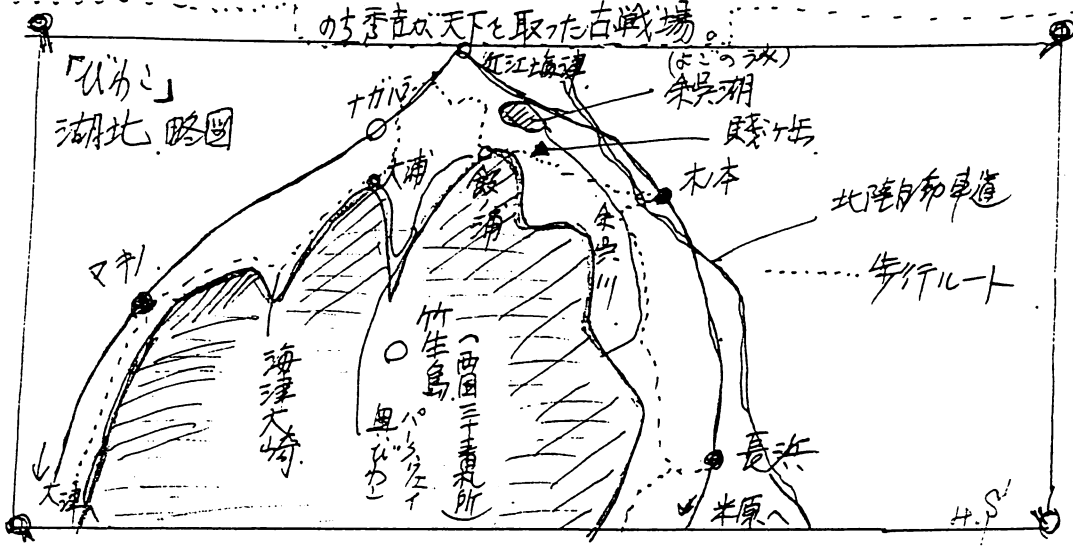 のち秀吉が天下を取った古戦場。
「びわこ」
湖北略図
近江塩津
(よごのうみ)
余呉湖
賤ヶ岳
大浦
飯浦
木本
北陸自動車道
余呉川
マキノ
歩行ルート
海津大崎
竹生島
(西国三十番札所)
奥びわこ
パークウェイ
長浜
大津へ
米原へ
H.S